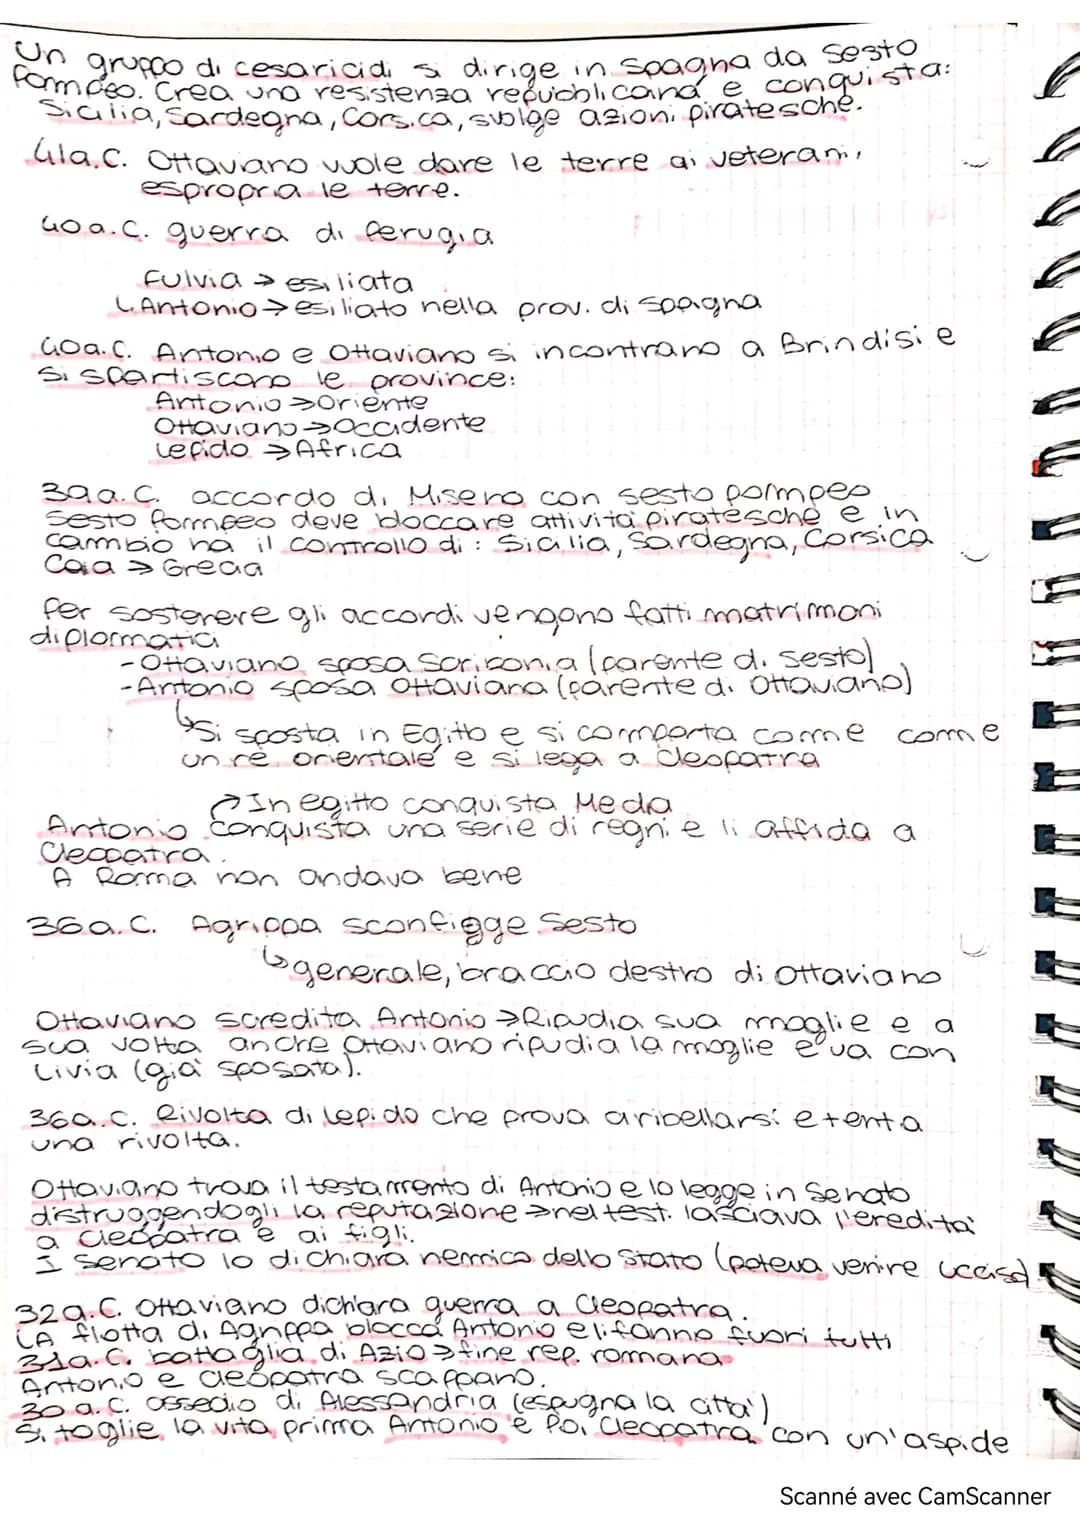 Un gruppo di cesaricidi si dirige in Spagna da Sesto
Pompeo. Crea una resistenza repubblicana e conquista:
Sicilia, Sardegna, Corsica, svolge azioni piratesche.
41a.C. Ottaviano vuole dare le terre ai veterani,
espropria le terre.
40a.C. guerra di Perugia
Fulvia → esiliata
↳ Antonio → esiliato nella prov. di Spagna
40a.C. Antonio e Ottaviano si incontrano a Brindisi e
si spartiscono le province:
Antonio → Oriente
Ottaviano → Occidente
Lepido → Africa
39a.C. accordo di Miseno con Sesto Pompeo
Sesto Pompeo deve bloccare attività piratesche e in
cambio ha il controllo di: Sicilia, Sardegna, Corsica
→ Grecia
Per sostenere gli accordi vengono fatti matrimoni
diplomatici
- Ottaviano sposa Scribonia (parente di Sesto)
- Antonio sposa Ottaviana (parente di Ottaviano)
↳ Si sposta in Egitto e si comporta come come
un re orientale e si lega a Cleopatra
↗ In egitto conquista Media
Antonio conquista una serie di regni e li affida a
Cleopatra.
A Roma non andava bene
36a.C. Agrippa sconfigge Sesto
↳ generale, braccio destro di Ottaviano
Ottaviano scredita Antonio → Ripudia sua moglie e a
sua volta anche Ottaviano ripudia la moglie e va con
Livia (già sposata).
36a.C. Rivolta di Lepido che prova a ribellarsi e tenta
una rivolta.
Ottaviano trova il testamento di Antonio e lo legge in Senato
distruggendogli la reputazione → nel test. lasciava l'eredità
a Cleopatra e ai figli.
I Senato lo dichiara nemico dello Stato (poteva venire ucciso)
32a.C. Ottaviano dichiara guerra a Cleopatra.
LA flotta di Agrippa blocca Antonio e li fanno fuori tutti
31a.C. battaglia di Azio → fine rep. romana
Antonio e Cleopatra scappano.
30 a.C. assedio di Alessandria (espugna la città)
Si toglie la vita prima Antonio e poi Cleopatra con un'aspide
Scanné avec CamScanner